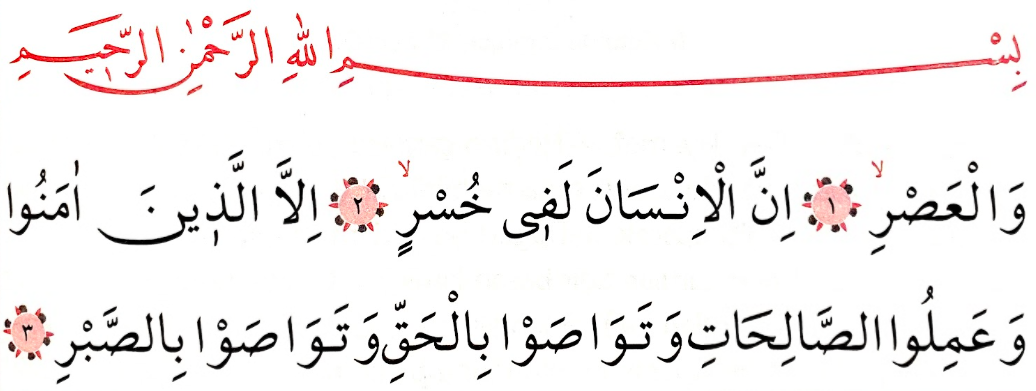 بِسْمِ اللهِ الرَّحْمٰنِ الرَّحٖيمِ
وَالْعَصْرِۙ ﴿١﴾ اِنَّ الْاِنْسَانَ لَفٖى خُسْرٍۙ ﴿٢﴾ اِلَّا الَّذٖينَ اٰمَنُوا
وَعَمِلُوا الصَّالِحَاتِ وَتَوَاصَوْا بِالْحَقِّ وَتَوَاصَوْا بِالصَّبْرِ ﴿٣﴾